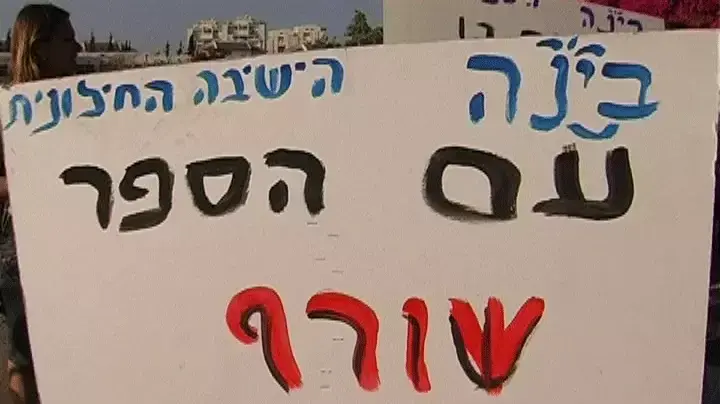 בינה
בינה הישיבה החילונית
עם הספר
שורף